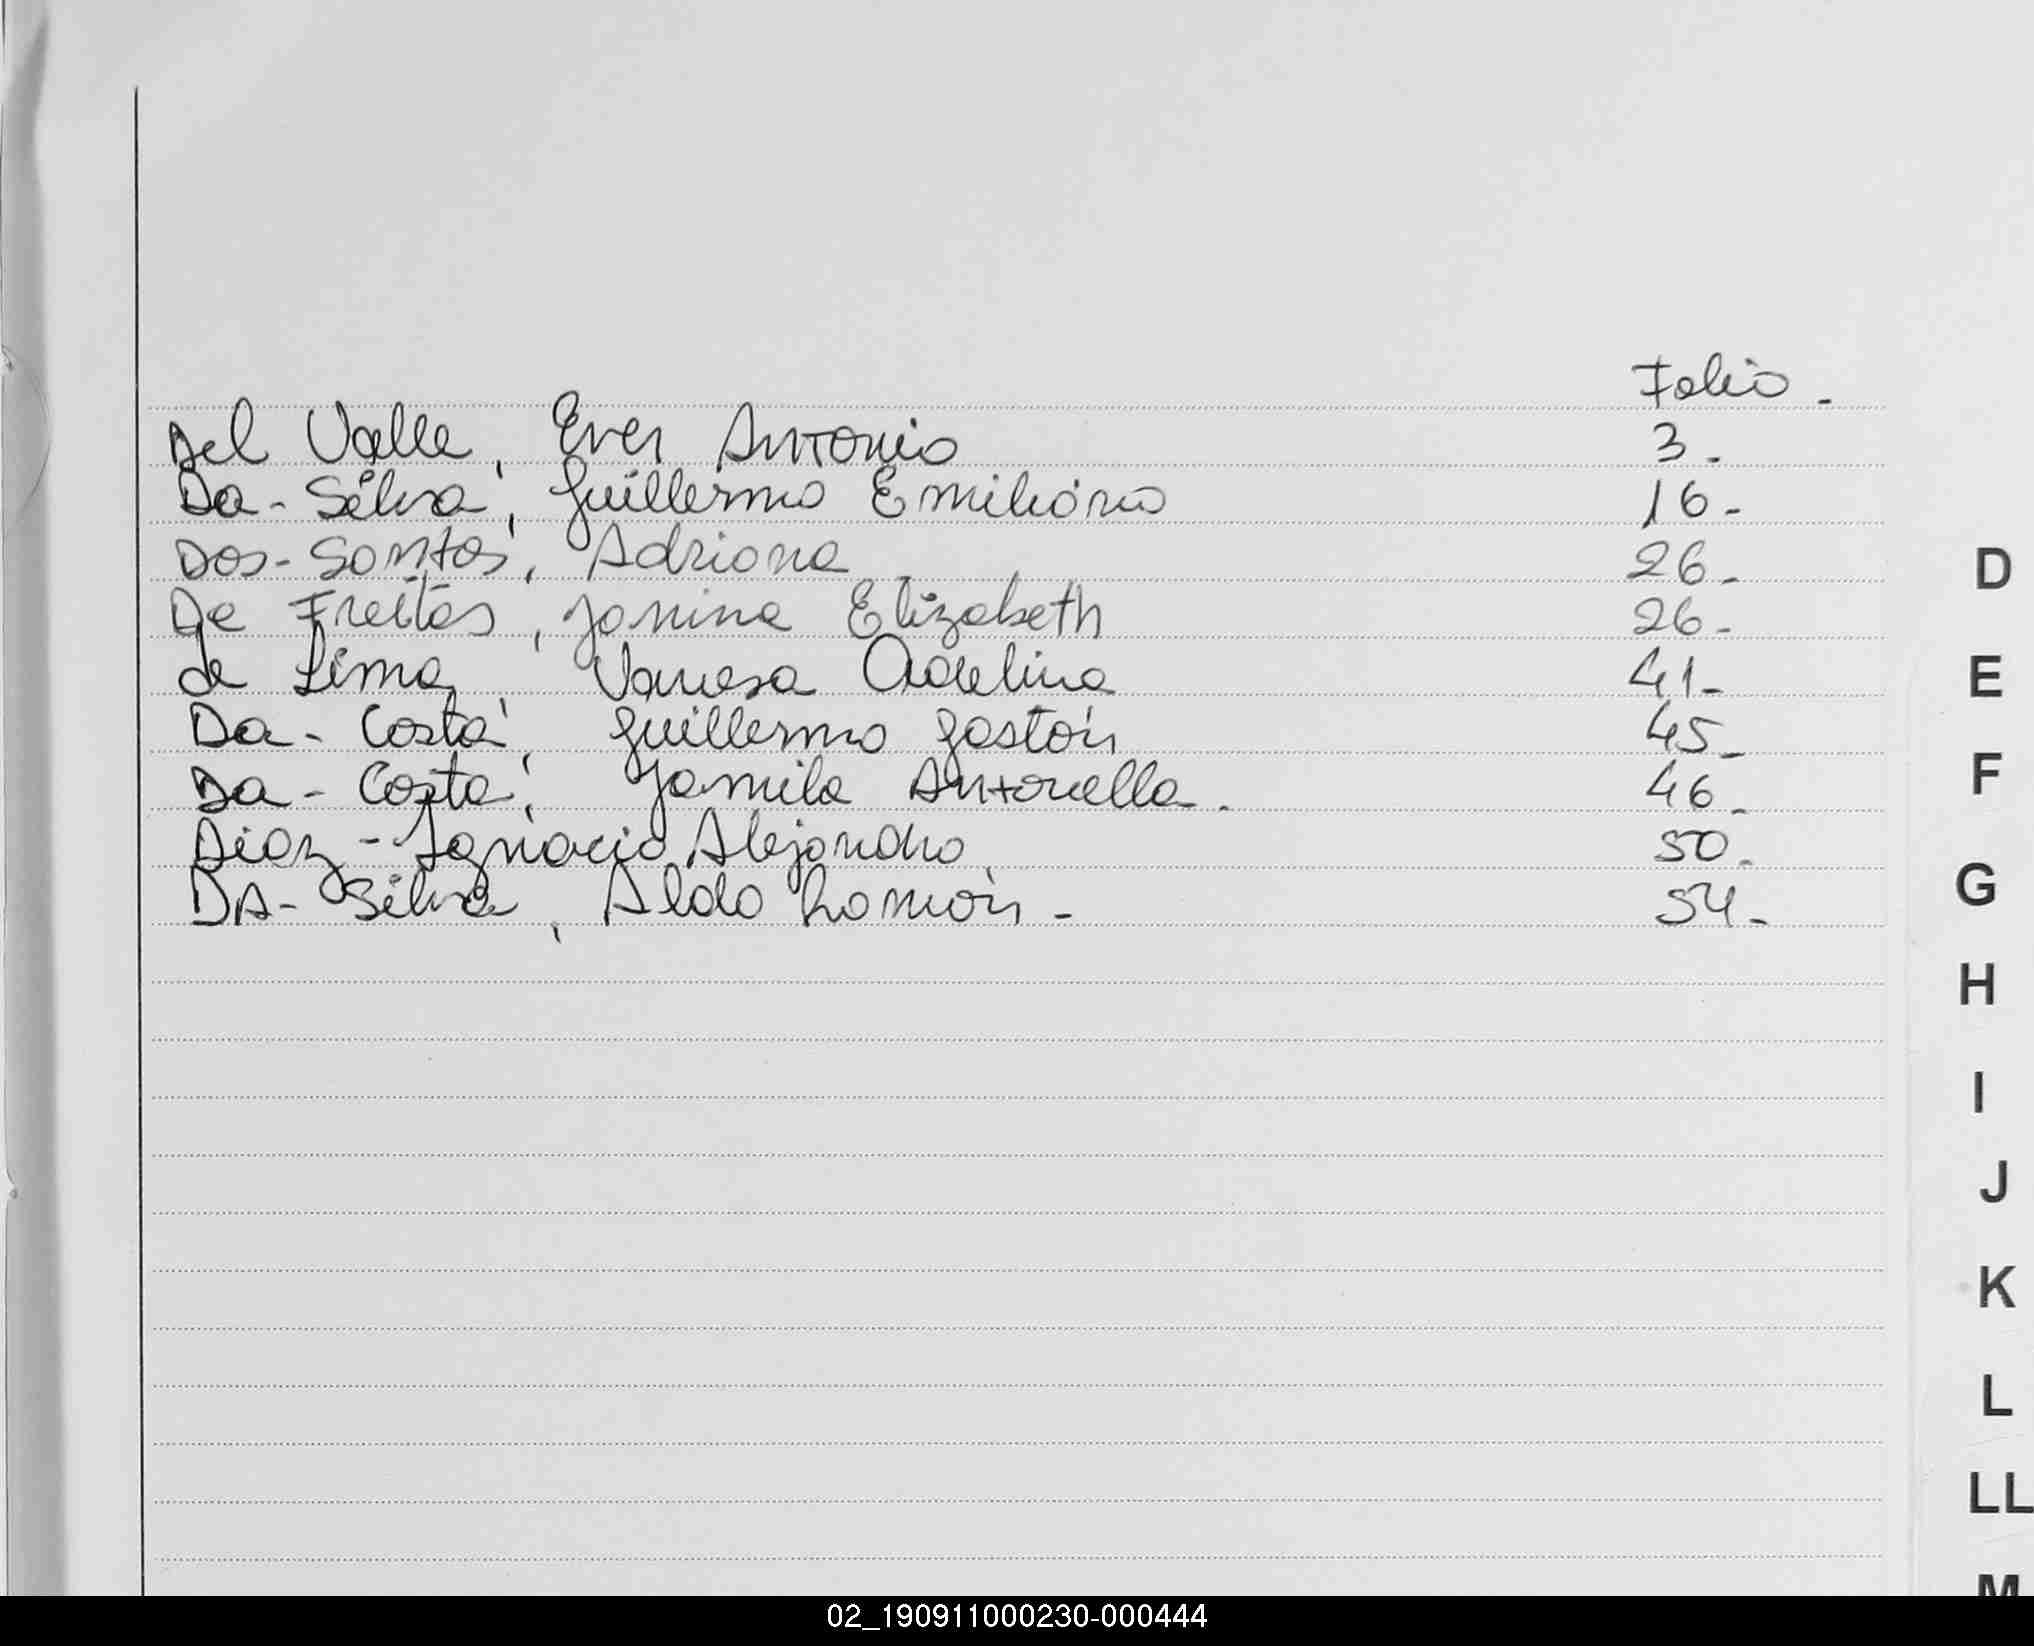 Folio.-
Del Valle, Ever Antonio 3.-
Da-Silva, Guillermo Emiliano 16.-
Dos-Santos, Adriana 26.-
De Freitas, Janina Elizabeth 26.-
de Lima, Vanesa Adelina 41.-
Da-Costa, Guillermo Gastón 45.-
Da-Costa, Jamila Antonella. 46.-
Diaz-Ignacio Alejandro 50.-
DA-Silva, Aldo Ramón.- 54.-
D
E
F
G
H
I
J
K
L
LL
M
02_190911000230-000444